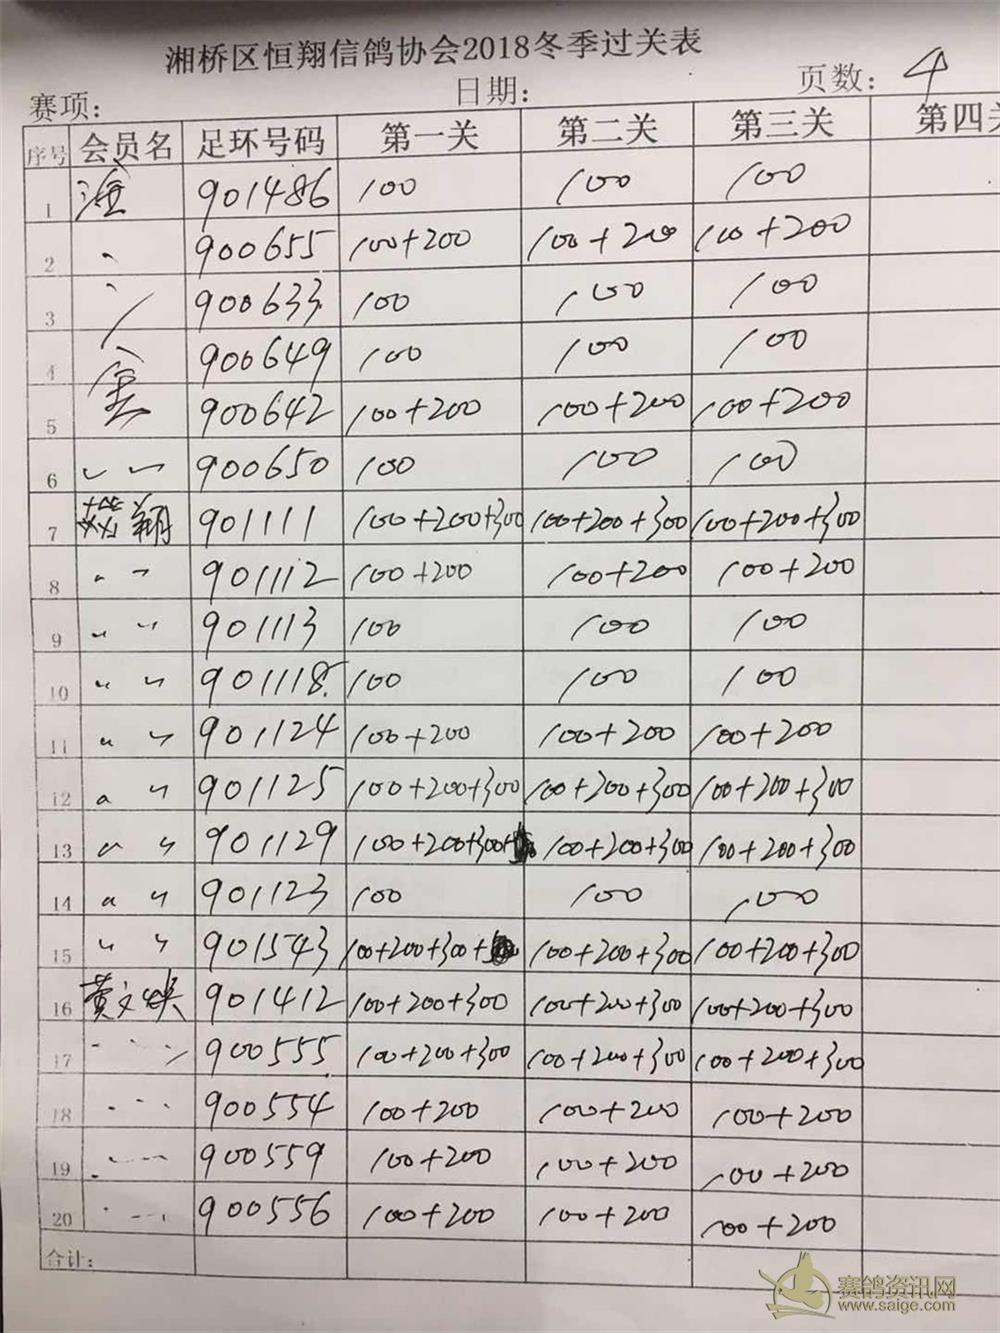 湘桥区恒翔信鸽协会2018冬季过关表
赛项: 日期: 页数: 4
序号 会员名 足环号码 第一关 第二关 第三关 第四关
1 901486 100 100 100
2 900655 100+200 100+200 100+200
3 900633 100 100 100
4 900649 100 100 100
5 900642 100+200 100+200 100+200
6 〃 900650 100 100 100
7 翔 901111 100+200+300 100+200+300 100+200+300
8 〃 901112 100+200 100+200 100+200
9 〃 〃 901113 100 100 100
10 〃 〃 901118 100 100 100
11 〃 〃 901124 100+200 100+200 100+200
12 〃 〃 901125 100+200+300 100+200+300 100+200+300
13 〃 〃 901129 100+200+300+ 100+200+300 100+200+300
14 〃 〃 901123 100 100 100
15 〃 〃 901543 100+200+300+ 100+200+300 100+200+300
16 黄文 901412 100+200+300 100+200+300 100+200+300
17 900555 100+200+300 100+200+300 100+200+300
18 900554 100+200 100+200 100+200
19 900559 100+200 100+200 100+200
20 900556 100+200 100+200 100+200
合计:
赛鸽资讯网
www.saige.com